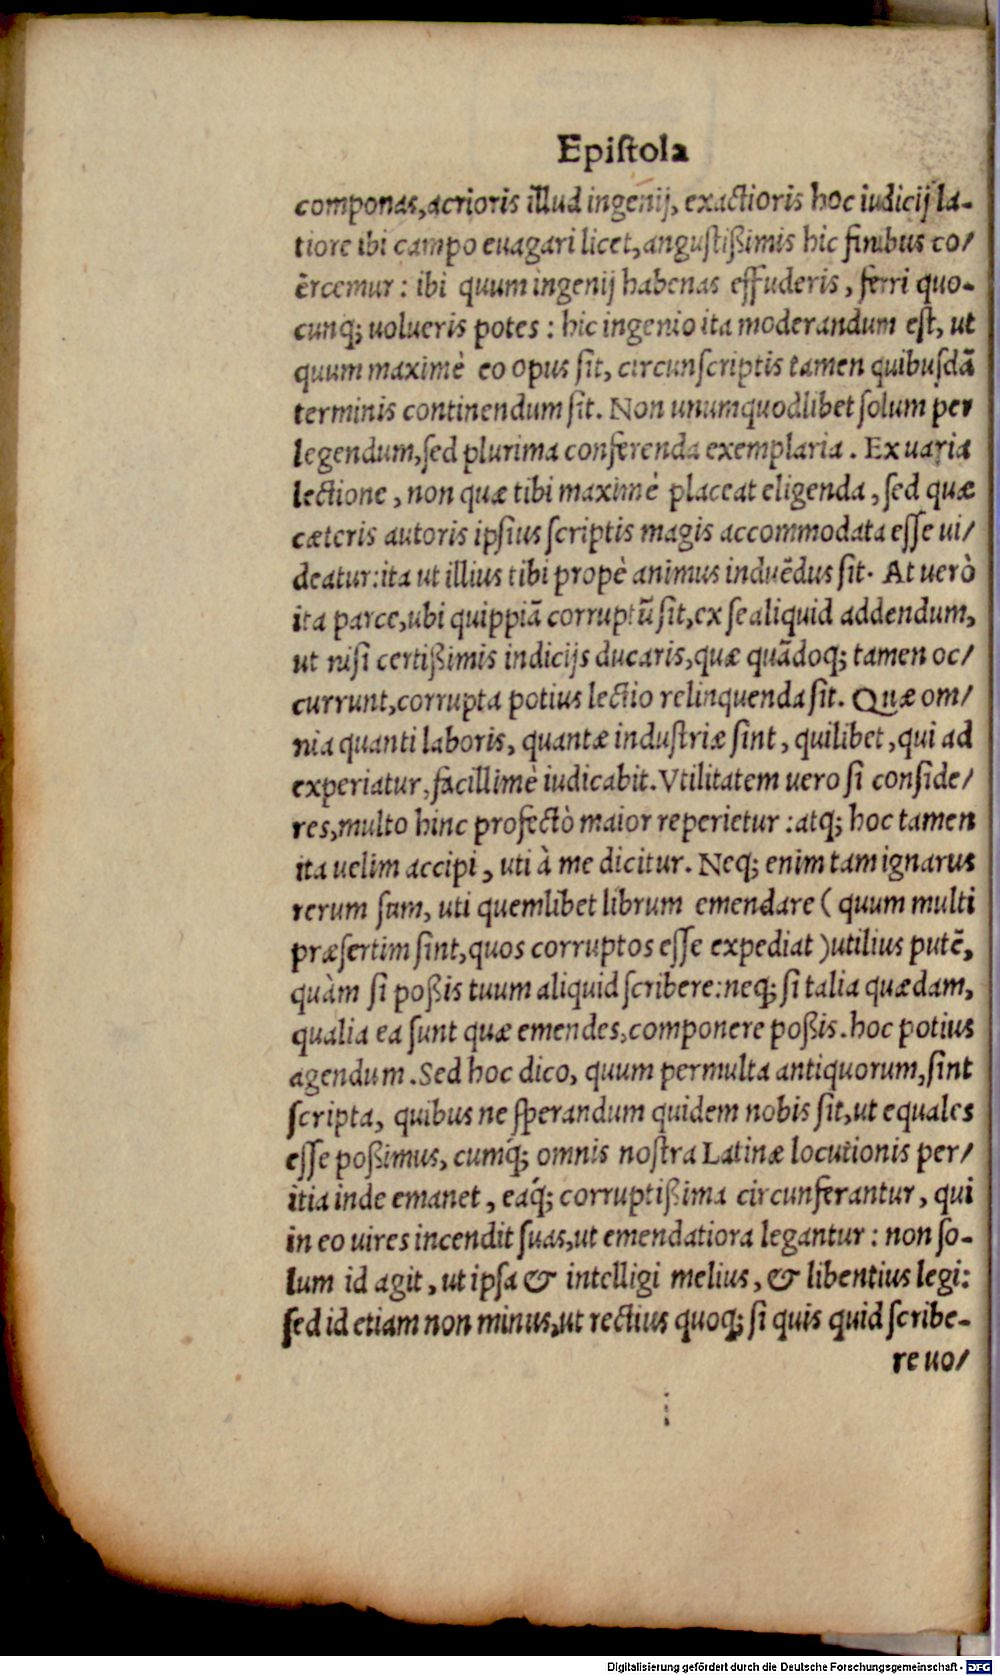 Epiſtola
componas, acrioris illud ingenij, exactioris hoc iudicij la-
tiore ibi campo euagari licet, anguſtißimis hic finibus co/
ẽrcemur: ibi quum ingenij habenas effuderis, ferri quo-
cunq; uolueris potes: hic ingenio ita moderandum eſt, ut
quum maximè eo opus ſit, circunſcriptis tamen quibuſdã
terminis continendum ſit. Non unumquodlibet ſolum per
legendum, ſed plurima conferenda exemplaria. Ex uaria
lectione, non quæ tibi maximè placeat eligenda, ſed quæ
cæteris autoris ipſius ſcriptis magis accommodata eſſe ui/
deatur: ita ut illius tibi propè animus induẽdus ſit. At uerò
ita parce, ubi quippiã corruptũ ſit, ex ſe aliquid addendum,
ut niſi certißimis indicijs ducaris, quæ quãdoq; tamen oc/
currunt, corrupta potius lectio relinquenda ſit. Quæ om/
nia quanti laboris, quantæ induſtriæ ſint, quilibet, qui ad
experiatur, facillimè iudicabit. Vtilitatem uero ſi conſide/
res, multo hinc profectò maior reperietur: atq; hoc tamen
ita uelim accipi, uti à me dicitur. Neq; enim tam ignarus
rerum ſum, uti quemlibet librum emendare (quum multi
præſertim ſint, quos corruptos eſſe expediat) utilius putẽ,
quàm ſi poßis tuum aliquid ſcribere: neq; ſi talia quædam,
qualia ea ſunt quæ emendes, componere poßis. hoc potius
agendum. Sed hoc dico, quum permulta antiquorum, ſint
ſcripta, quibus ne ſperandum quidem nobis ſit, ut equales
eſſe poßimus, cumq́; omnis noſtra Latinæ locutionis per/
itia inde emanet, eaq́; corruptißima circunferantur, qui
in eo uires incendit ſuas, ut emendatiora legantur: non ſo-
lum id agit, ut ipſa & intelligi melius, & libentius legi:
ſed id etiam non minus, ut rectius quoq; ſi quis quid ſcribe-
re uo/
Digitalisierung gefördert durch die Deutsche Forschungsgemeinschaft - DFG